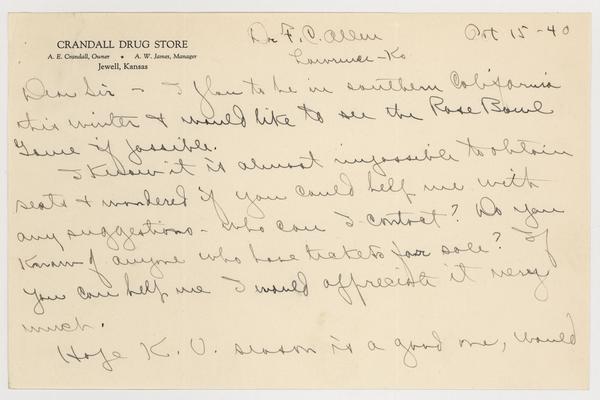 CRANDALL DRUG STORE
A. E. Crandall, Owner • A. W. James, Manager
Jewell, Kansas
Dr F. C. Allen
Oct 15 - 40
Lawrence - Ks
Dear Sir - I plan to be in southern California
this winter & would like to see the Rose Bowl
Game if possible.
I know it is almost impossible to obtain
seats & wondered if you could help me with
any suggestions - who can I contact? Do you
Know of anyone who have tickets for sale? If
you can help me I would appreciate it very
much.
Hope K. U. season is a good one, would